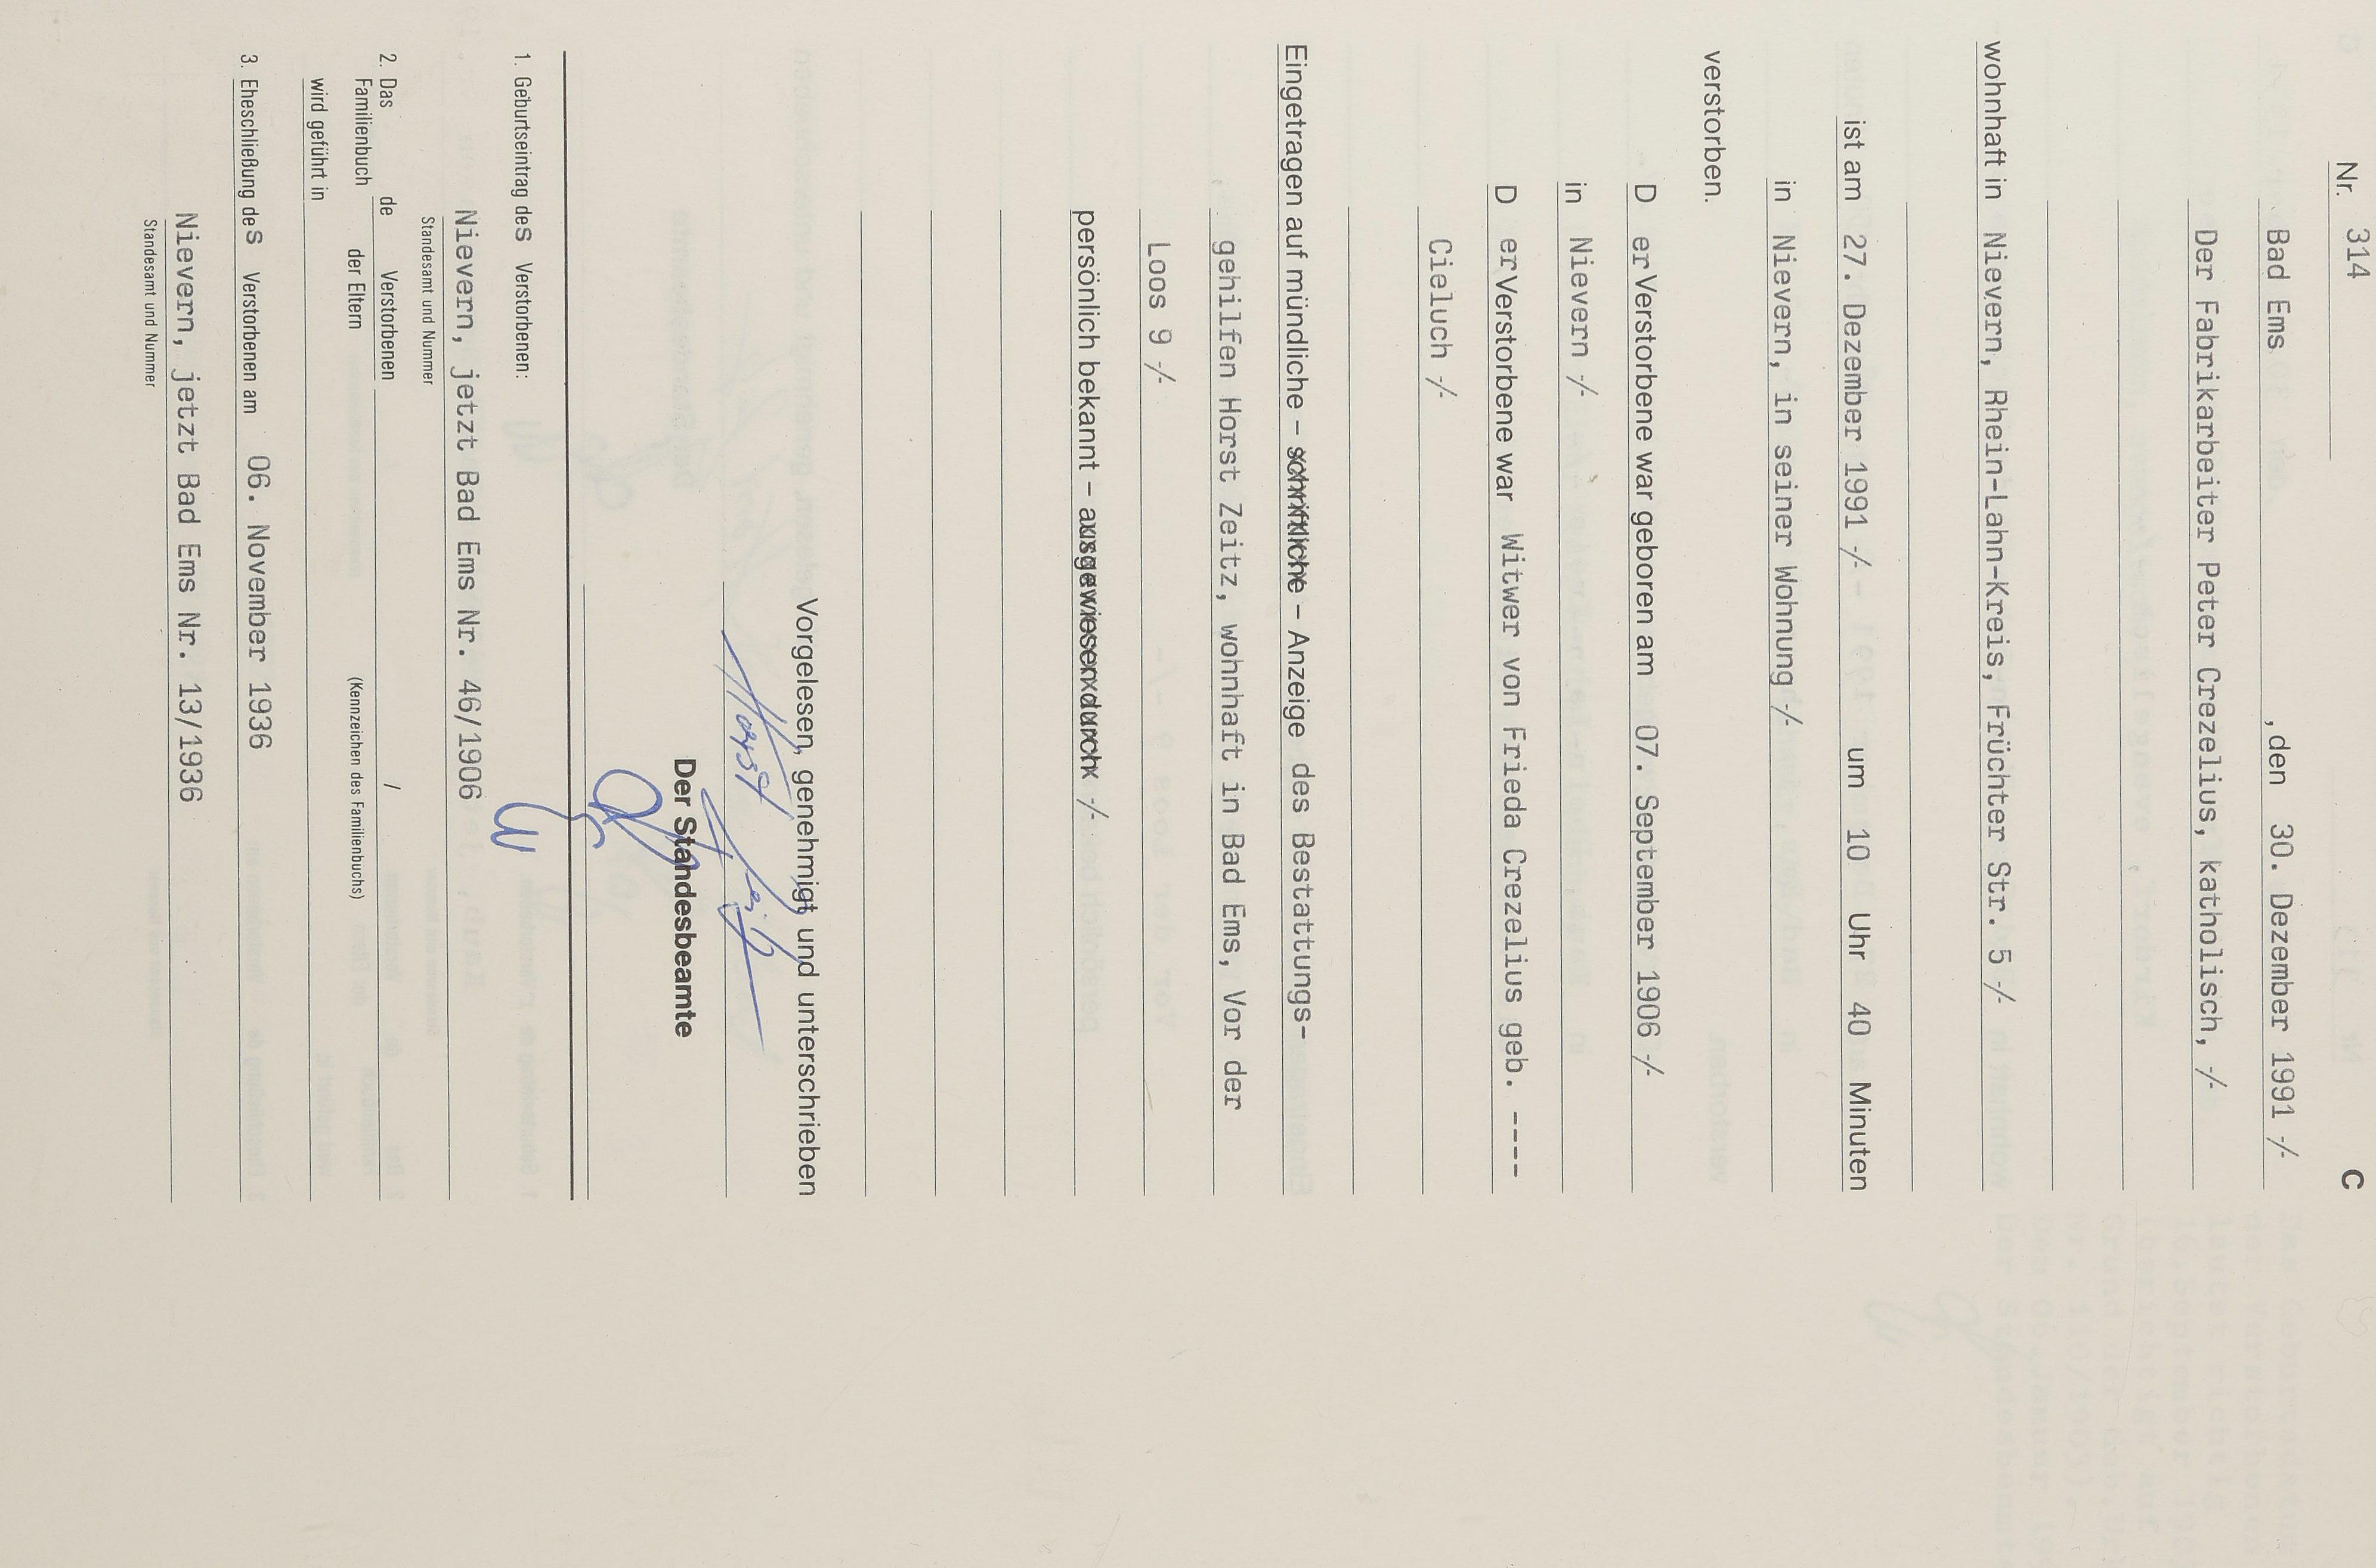 Nr. 314 C
Bad Ems, den 30. Dezember 1991 -/-
Der Fabrikarbeiter Peter Crezelius, katholisch, -/-
wohnhaft in Nievern, Rhein-Lahn-Kreis, Früchter Str. 5 -/-
ist am 27. Dezember 1991 -/- um 10 Uhr 40 Minuten
in Nievern, in seiner Wohnung -/-
verstorben.
D er Verstorbene war geboren am 07. September 1906 -/-
in Nievern -/-
D er Verstorbene war Witwer von Frieda Crezelius geb. ----
Cieluch -/-
Eingetragen auf mündliche – schriftliche – Anzeige des Bestattungs-
gehilfen Horst Zeitz, wohnhaft in Bad Ems, Vor der
Loos 9 -/-
persönlich bekannt – ausgewiesen durch -/-
Vorgelesen, genehmigt und unterschrieben
Horst Zeitz
Der Standesbeamte
1. Geburtseintrag des Verstorbenen:
Nievern, jetzt Bad Ems Nr. 46/1906
Standesamt und Nummer
2. Das de Verstorbenen /
Familienbuch der Eltern (Kennzeichen des Familienbuchs)
wird geführt in
3. Eheschließung des Verstorbenen am 06. November 1936
Nievern, jetzt Bad Ems Nr. 13/1936
Standesamt und Nummer